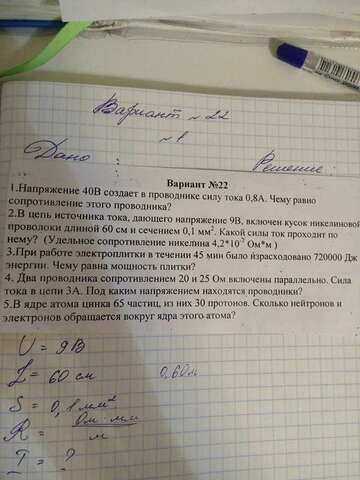 Вариант № 22
№ 1
Дано : Решение:
Вариант №22
1.Напряжение 40В создает в проводнике силу тока 0,8А. Чему равно
сопротивление этого проводника?
2.В цепь источника тока, дающего напряжение 9В, включен кусок никелиновой
проволоки длиной 60 см и сечением 0,1 мм². Какой силы ток проходит по
нему? (Удельное сопротивление никелина 4,2*10⁻⁷ Ом*м )
3.При работе электроплитки в течении 45 мин было израсходовано 720000 Дж
энергии. Чему равна мощность плитки?
4. Два проводника сопротивлением 20 и 25 Ом включены параллельно. Сила
тока в цепи 3А. Под каким напряжением находятся проводники?
5.В ядре атома цинка 65 частиц, из них 30 протонов. Сколько нейтронов и
электронов обращается вокруг ядра этого атома?
U = 9В
L = 60 см 0,60м
S = 0,1 мм²
R = Ом · мм
м
I = ?